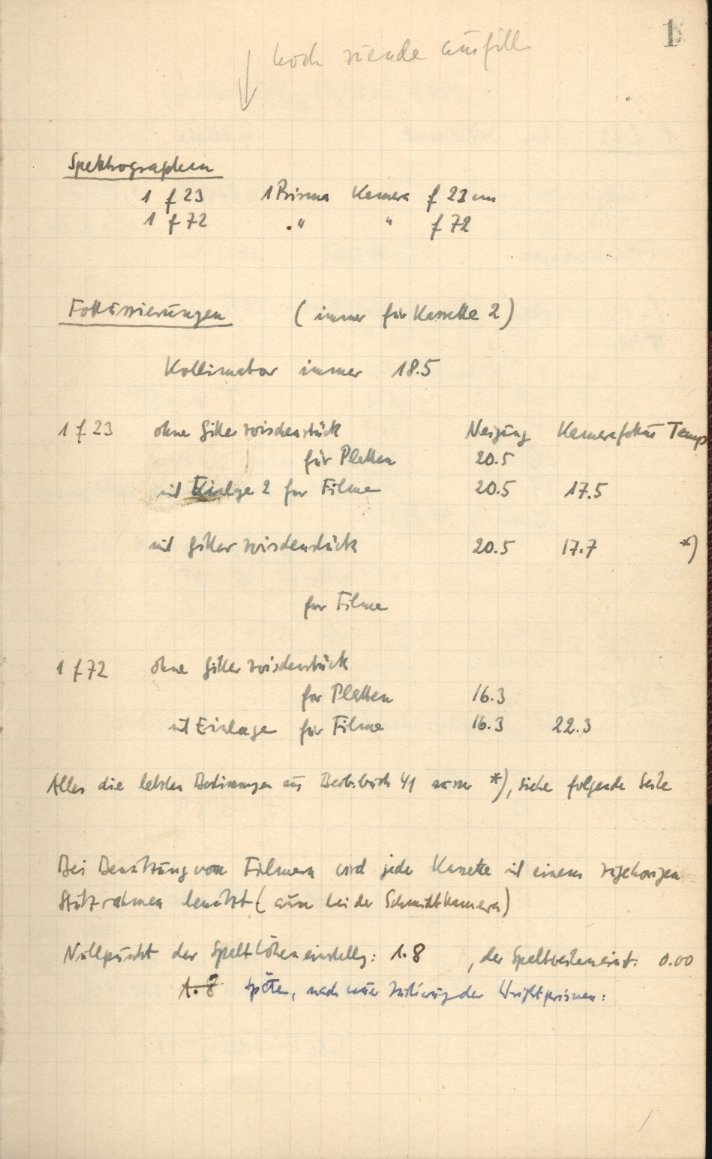 1
noch
Spektrographen
1 f 23 1 Prisma Kamera f 23 cm
1 f 72 " " f 72
Fokussierungen (immer für Kassette 2)
Kollimator immer 18.5
1 f 23 ohne Gitterzwischenstück Neigung Kamerafokus Temp
für Platten 20.5
mit Einlage 2 für Filme 20.5 17.5
mit Gitterzwischenstück 20.5 17.7 *)
für Filme
1 f 72 ohne Gitterzwischenstück
für Platten 16.3
mit Einlage für Filme 16.3 22.3
Alles die letzten aus 41 ausser *), siehe folgende Seite
Bei Benützung von Filmen wird jede Kassette mit einem zugehörigen
Stützrahmen benützt (ausser bei der Schmidtkamera)
Nullpunkt der Spalthöheneinstellg: 1.8 , der Spaltweiteneinst: 0.00
1.8 später, nach der :